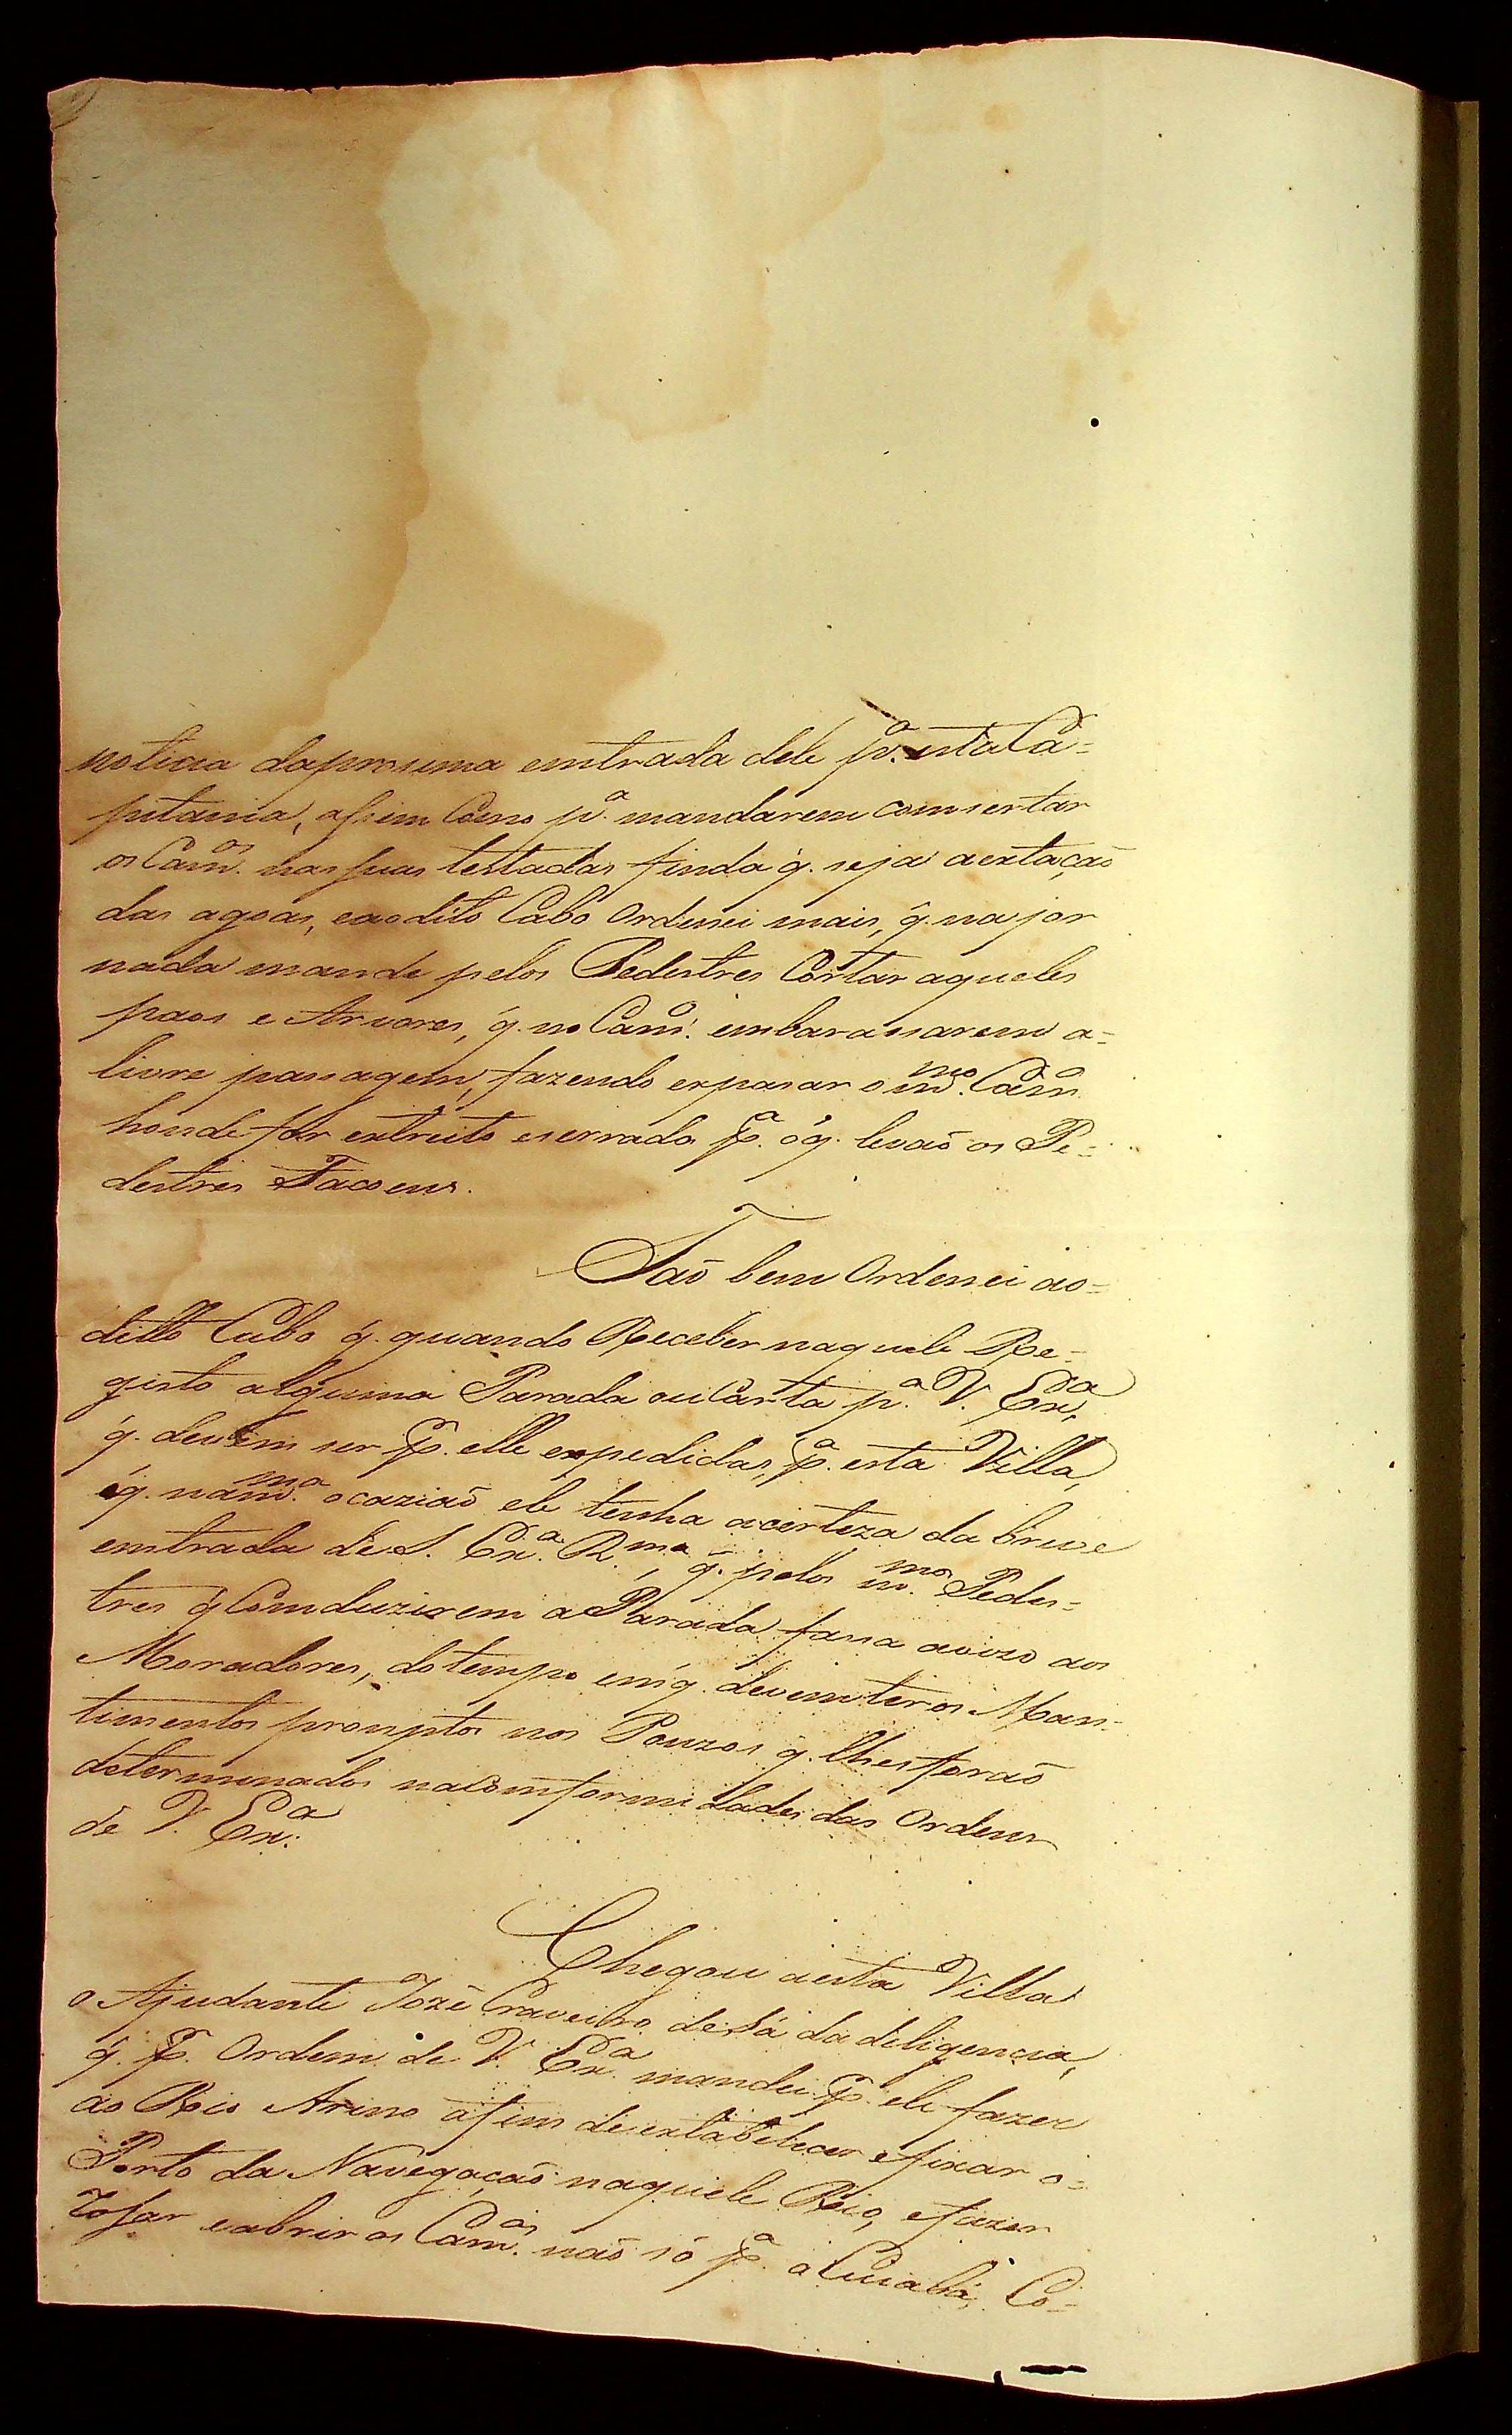 noticia daproxima emtrada dele pª. esta Ca=
pitania, assim Como pª. mandarem comsertar
os Camos. nas suas testadas finda q̃. seja aextação
das agoas, eaodito Cabo Ordenei mais, q̃. na jor
nada mande pelos Pedestres Cortar aqueles
paos e Arvores, q̃. no Camo. embarasarem a=
livre pasagem, fazendo expasar o mmo. Camo
honde for extreito eserrado pª. oq̃. levaõ os Pe=
destres Facoens.
Taõ bem Ordenei ao=
ditto Cabo q̃. quando Receber naquele Re=
gisto alguma Parada ou Carta pª. V. Exª,
q̃. devem ser P. elle expedidas, pª. esta Villa,
eq̃. namma. ocaziaõ ele tenha acerteza da breve
emtrada de S. Exª. Rma, q̃. pelos mmos. Pedes=
tres q̃ Comduzirem a Parada fasa avizo aos
Moradores, do tempo em q̃. devem ter os Man=
timentos promptos nos Pouzos q̃. lhes foraõ
determinados na Comformidade das Ordens
de V. Exª.
Chegou aesta Villa
o Ajudante Jozé Craveiro de Sá da diligencia,
q̃. P. Ordem de V. Exª. mandei P. ele fazer
ao Rio Arino afim de extabelecer efixar o=
Porto da Navegaçaõ naquele Rio, efazer
rosar eabrir os Camos. naõ só pª. o Cuiabá, Co=